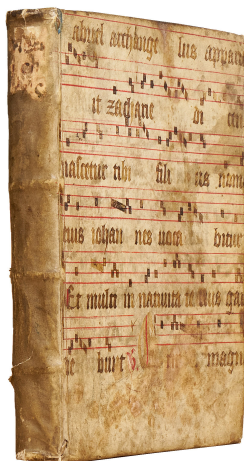 abriel archange lus apparu
it zacharie di cen
nascetur tibi fili us nom
eius iohan nes uoca bitur
Et multi in natiuita te eius gau
de bunt magn